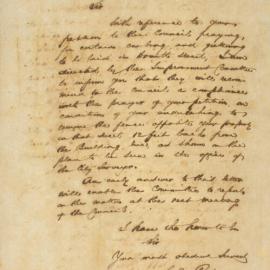 Sir
With reference to your
petition to the Council, praying
for certain curbing, and guttering
to be laid in Bonnett Street, I am
directed, by the Improvement Committee
to inform you that they will recom
mend to the Council a compliance
with the prayer of your petition, on
condition of your undertaking, to
remove the fence opposite your property
in that street 12 feet back from
the Building line as shown on the
plan to be seen in the office of
the City Surveyor.
An early answer to this letter
will enable the Committee to report
on the matter at the next meeting
of the Council.
I have the honor to be
Sir
Your most obedient Servant